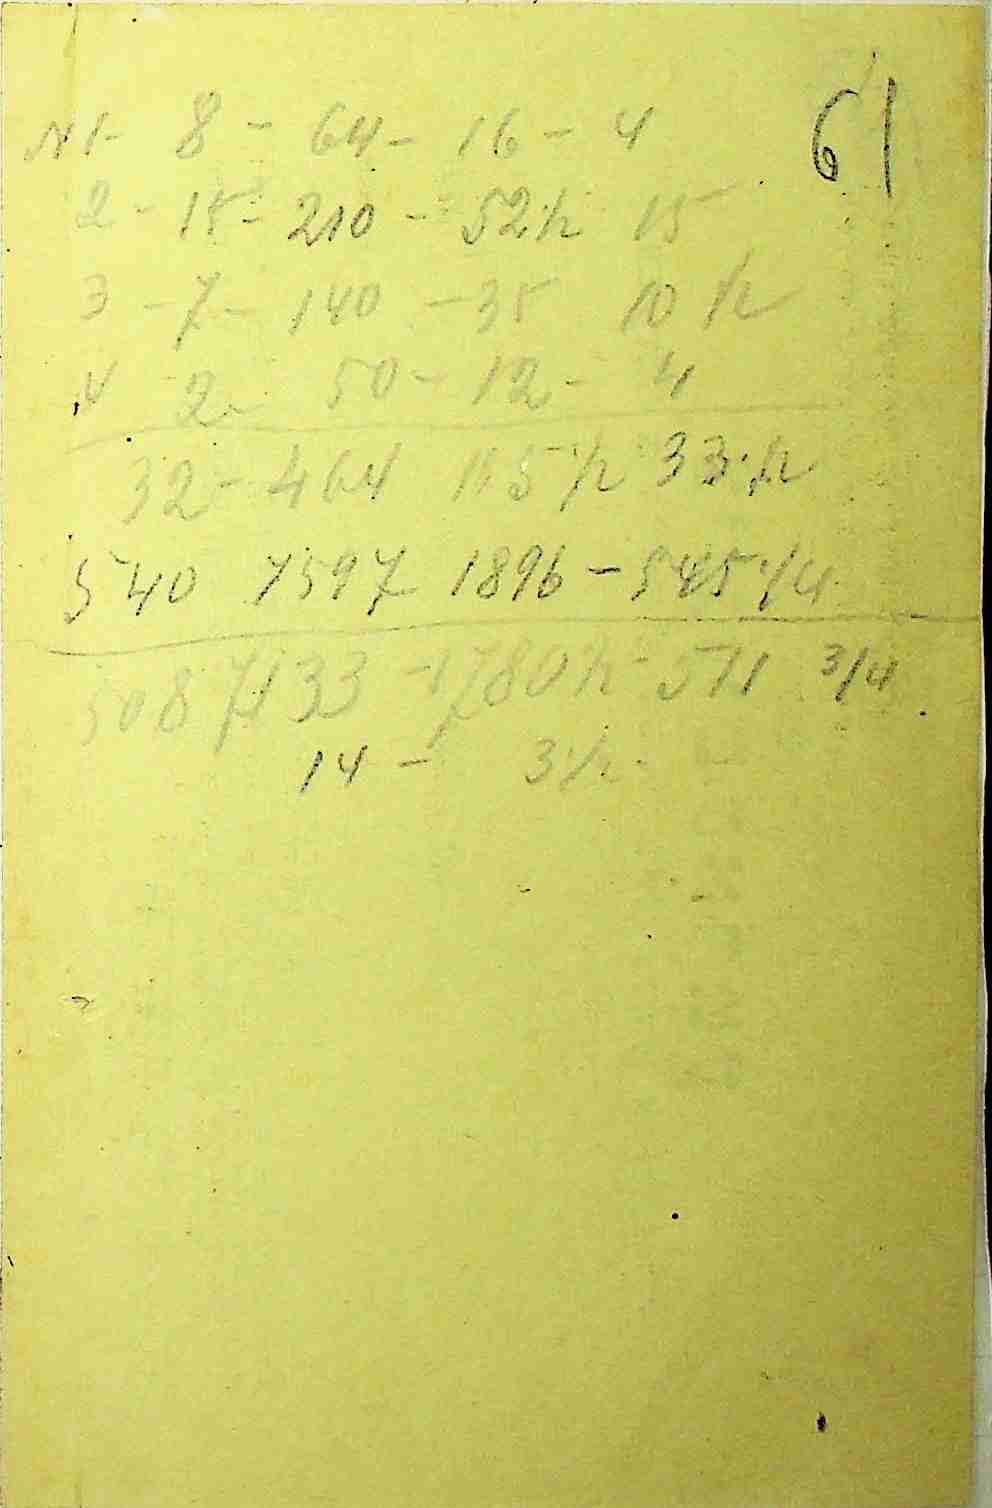 61
N 1 - 8 - 64 - 16 - 4
2 - 15 - 210 - 52 ½ 15
3 - 7 - 140 - 35 10 ½
V 2 - 50 - 12 - 4
32 - 464 115 ½ 33 ½
540 7597 1896 - 545 ¼
508 7133 - 1780 ½ - 511 3/4
14 - 3 ½